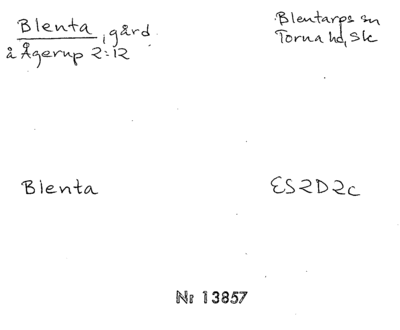 Blenta, gård
å Ågerup 2:12
Blentarps sn
Torna hd, Sk
Blenta
ES2D2c
Nr 13857